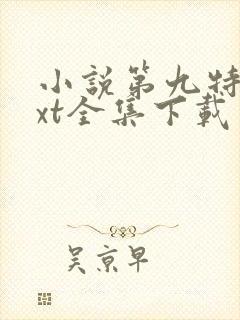 小説第九特
xt全集下載
吴京早